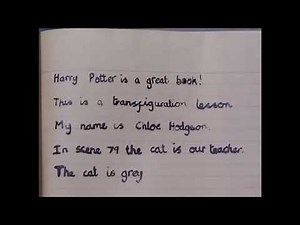 Harry Potter is a great book!
This is a transfiguration lesson.
My name is Chloe Hodgson.
In scene 79 the cat is our teacher.
The cat is grey